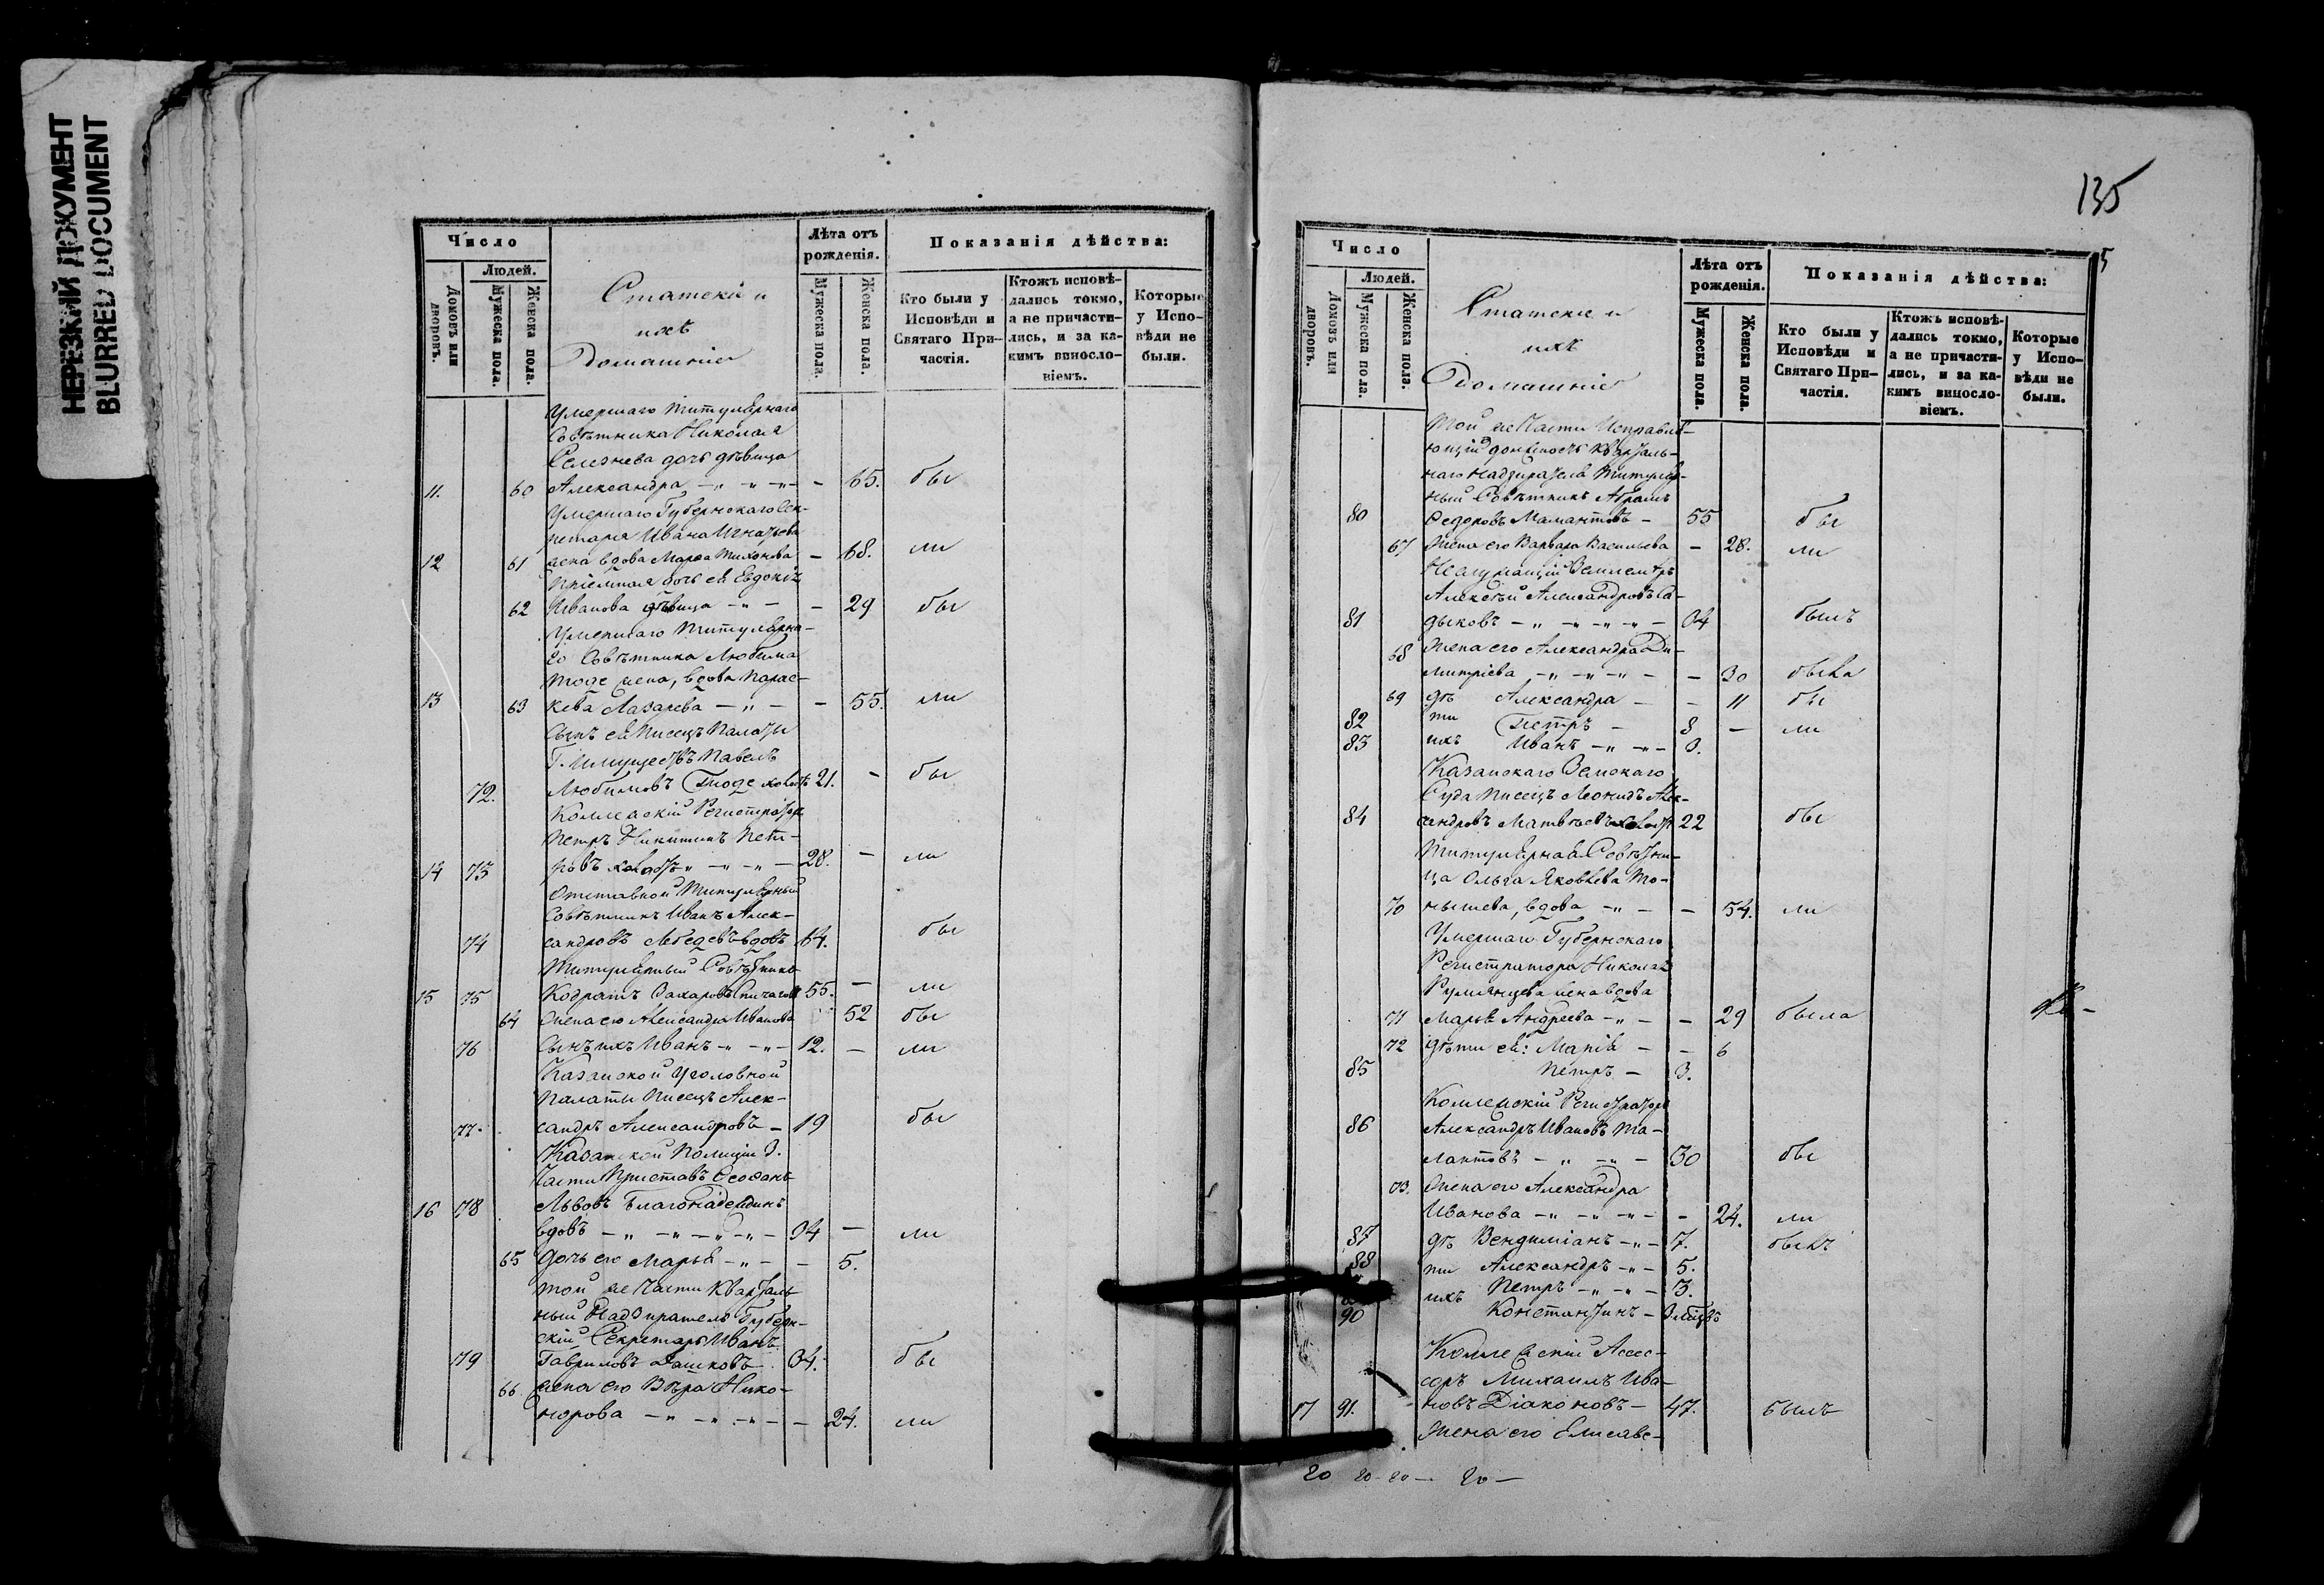 НЕРЕЗКИЙ ДОКУМЕНТ
BLURRED DOCUMENT
Число
Людей.
Домовъ или дворовъ.
Мужеска пола.
Женска пола.
Статскіе и
ихъ
домашніе
Лѣта отъ рожденія.
Мужеска пола.
Женска пола.
Показанія дѣйства:
Кто были у Исповѣди и Святаго При-частія.
Ктожъ исповѣ-дались токмо, а не причасти-лись, и за ка-кимъ винослo-віемъ.
Которые у Испо-вѣди не были.
Умершаго Титулярнаго
Совѣтника Николая
Селезнева дочь дѣвица
11. 60 Александра - 65. бы
Умершаго Губернскаго Сек-
ретаря Ивана Игнатьева
12 61 жена вдова Марѳа Тихонова - 68. ли
Пріемная дочь ея Евдокія
62 Иванова дѣвица - 29 бы
Умершаго Титулярна-
го Совѣтника Любима
Тоде жена, вдова Парас-
13 63 кева Лазарева - 55. ли
Сынъ ея Писецъ Палаты
Г. Имуществъ Павелъ
72. Любимовъ Тоде холостъ 21. - бы
Коллежскій Регистраторъ
Петръ Никитинъ Пет-
14 73 ровъ холостъ 28. - ли
Отставной Титулярный
Совѣтникъ Иванъ Алек-
74 сандровъ Лебедевъ вдовъ 64. бы
Титулярный Совѣтникъ
15 75 Кодратъ Захаровъ 55. - ли
64 Жена его Александра Иванова 52 бы
76 Сынъ ихъ Иванъ 12. - ли
Казанской Уголовной
Палаты Писецъ Алек-
77. сандръ Александровъ - 19 бы
Казанской Полиціи 3.
Части Приставъ Ѳеофанъ
16 78 Львовъ Благонадеждинъ
вдовъ 34 - ли
65 Дочь его Марья - 5.
Той же Части Кварталь-
ный Надзиратель Губерн-
скій Секретарь Иванъ
79 Гавриловъ Дашковъ 34. бы
66 Жена его Вѣра Нико-
норова - 24. ли
135
5
Число
Людей.
Домовъ или дворовъ.
Мужеска пола.
Женска пола.
Статскіе и
ихъ
домашніе
Лѣта отъ рожденія.
Мужеска пола.
Женска пола.
Показанія дѣйства:
Кто были у Исповѣди и Святаго При-частія.
Ктожъ исповѣ-дались токмо, а не причасти-лись, и за ка-кимъ винослo-віемъ.
Которые у Испо-вѣди не были.
Той же Части Исправля-
ющій должность Кварталь-
наго Надзирателя Титуляр-
ный Совѣтникъ Абрамъ
80 Ѳедоровъ Мамантовъ - 55 бы
67 Жена его Варвара Васильева - 28. ли
Неслужащій Землемѣръ
Алексѣй Александровъ Са-
81 дыковъ - 34 былъ
68 Жена его Александра Ди-
митріева - 30 была
69 дѣ Александра - 11 бы
82 ти Петръ - 8 - ли
83 ихъ Иванъ - 3.
Казанскаго Земскаго
Суда Писецъ Леонидъ Алек-
84 сандровъ Матвѣевъ холостъ 22 бы
Титулярная Совѣтни-
ца Ольга Яковлева То-
70 нышева, вдова - 54. ли
Умершаго Губернскаго
Регистратора Николая
Румянцева жена вдова
71 Марья Андреева - 29 была
72 дѣти ея: Марія - 6
85 Петръ - 3.
Коллежскій Регистраторъ
86 Александръ Ивановъ Ма-
лантовъ - 30 бы
73. Жена его Александра
Иванова - 24. ли
87 дѣ Вендиміанъ - 7. былъ
88 ти Александръ - 5.
ихъ Петръ - 3.
90 Константинъ -
Коллежскій Ассес-
соръ Михаилъ Ива-
17 91. новъ Діаконовъ - 47. былъ
Жена его Елисаве-
20 20 - 20 - 20 -